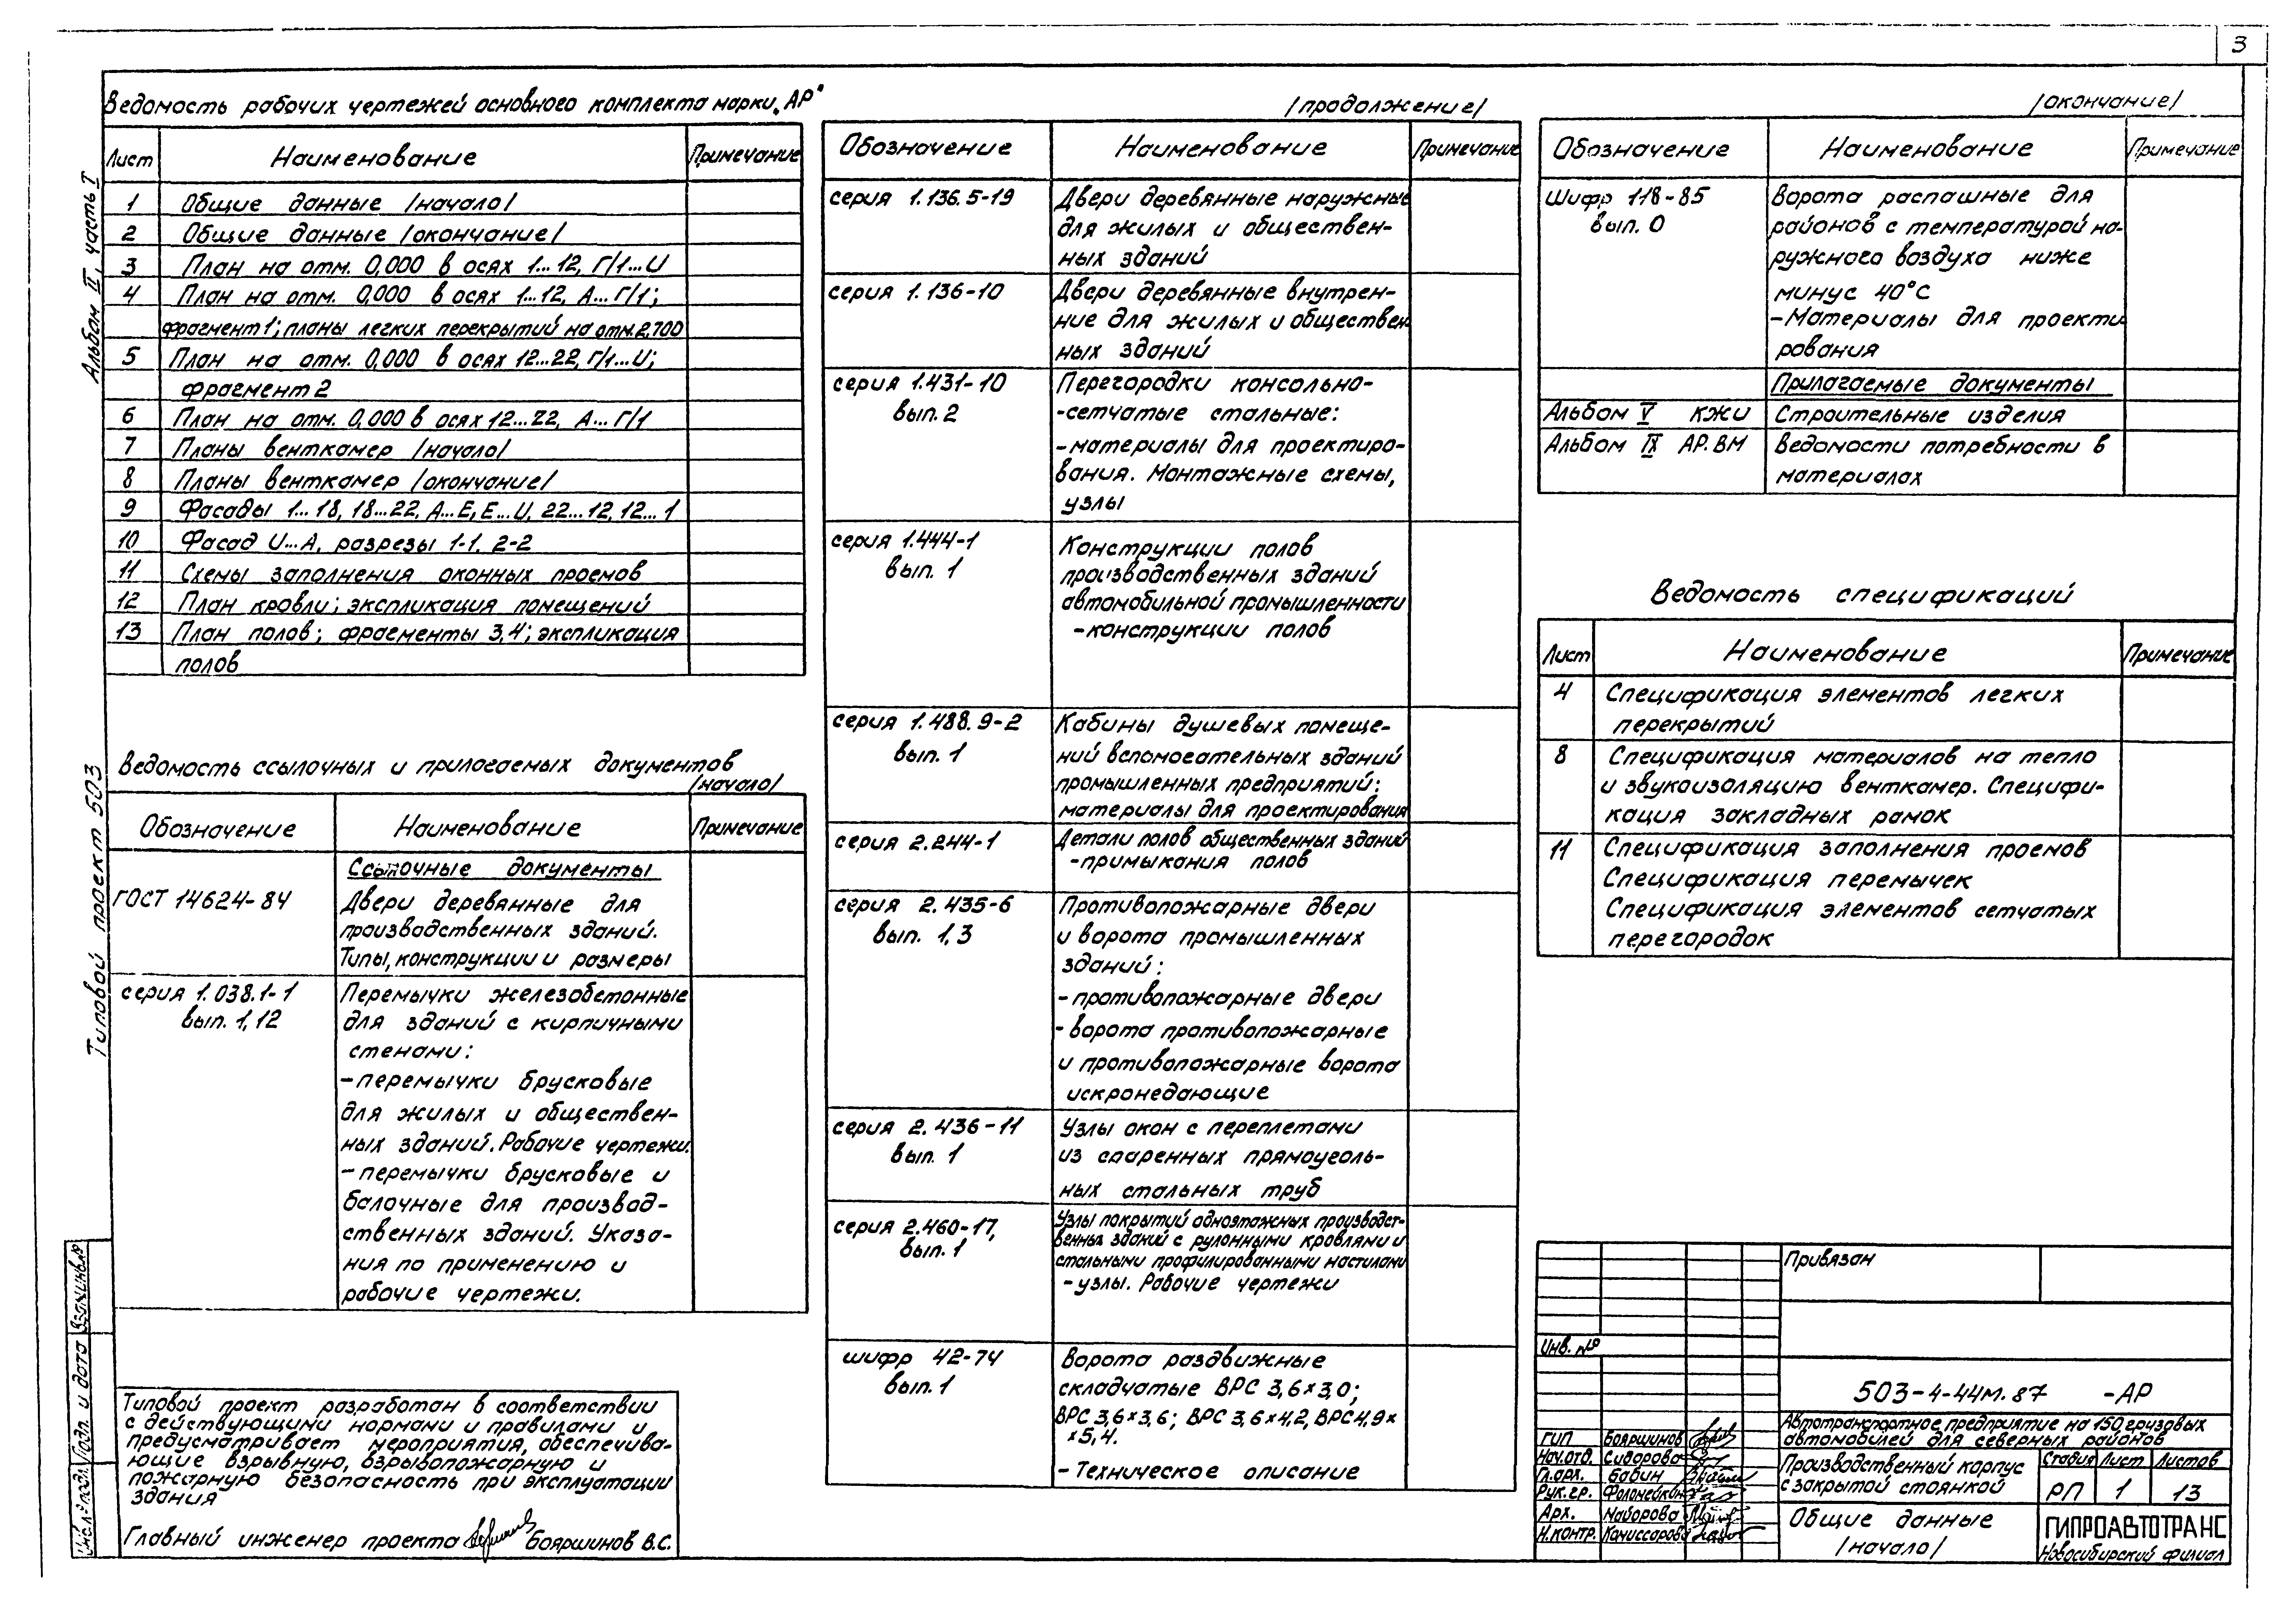 3
Ведомость рабочих чертежей основного комплекта марки „АР"
Лист Наименование Примечание
1 Общие данные /начало/
2 Общие данные /окончание/
3 План на отм. 0,000 в осях 1...12, Г/1...И
4 План на отм. 0,000 в осях 1...12, А...Г/1;
фрагмент 1; планы легких перекрытий на отм. 2,700
5 План на отм. 0,000 в осях 12...22, Г/1...И;
фрагмент 2
6 План на отм. 0,000 в осях 12...22, А...Г/1
7 Планы венткамер /начало/
8 Планы венткамер /окончание/
9 Фасады 1...18, 18...22, А...Е, Е...И, 22...12, 12...1
10 Фасад И...А, разрезы 1-1, 2-2
11 Схемы заполнения оконных проемов
12 План кровли; экспликация помещений
13 План полов; фрагменты 3,4; экспликация
полов
Альбом II, часть I
Типовой проект 503
Ведомость ссылочных и прилагаемых документов
/начало/
Обозначение Наименование Примечание
Ссылочные документы
ГОСТ 14624-84 Двери деревянные для
производственных зданий.
Типы, конструкции и размеры
серия 1.038.1-1 Перемычки железобетонные
вып. 1,12 для зданий с кирпичными
стенами:
-перемычки брусковые
для жилых и обществен-
ных зданий. Рабочие чертежи.
-перемычки брусковые и
балочные для производ-
ственных зданий. Указа-
ния по применению и
рабочие чертежи.
Типовой проект разработан в соответствии
с действующими нормами и правилами и
предусматривает мероприятия, обеспечива-
ющие взрывную, взрывопожарную и
пожарную безопасность при эксплуатации
здания
Главный инженер проекта Бояршинов В.С.
Инв.№ подл. Подп. и дата Взам.инв.№
/продолжение/
Обозначение Наименование Примечание
серия 1.136.5-19 Двери деревянные наружные
для жилых и обществен-
ных зданий
серия 1.136-10 Двери деревянные внутрен-
ние для жилых и обществен
ных зданий
серия 1.431-10 Перегородки консольно-
вып. 2 -сетчатые стальные:
-материалы для проектиро-
вания. Монтажные схемы,
узлы
серия 1.444-1 Конструкции полов
вып. 1 производственных зданий
автомобильной промышленности
-конструкции полов
серия 1.488.9-2 Кабины душевых помеще-
вып. 1 ний вспомогательных зданий
промышленных предприятий:
материалы для проектирования
серия 2.244-1 Детали полов общественных зданий
-примыкания полов
серия 2.435-6 Противопожарные двери
вып. 1,3 и ворота промышленных
зданий:
-противопожарные двери
-ворота противопожарные
и противопожарные ворота
искронедающие
серия 2.436-11 Узлы окон с переплетами
вып. 1 из спаренных прямоуголь-
ных стальных труб
серия 2.460-17, Узлы покрытий одноэтажных производст-
вып. 1 венных зданий с рулонными кровлями и
стальными профилированными настилами
-узлы. Рабочие чертежи
шифр 42-74 Ворота раздвижные
вып. 1 складчатые ВРС 3,6×3,0;
ВРС 3,6×3,6; ВРС 3,6×4,2, ВРС 4,9×
×5,4.
-Техническое описание
/окончание/
Обозначение Наименование Примечание
Шифр 118-85 Ворота распашные для
вып. 0 районов с температурой на-
ружного воздуха ниже
минус 40°С
-Материалы для проекти
рования
Прилагаемые документы
Альбом V КЖИ Строительные изделия
Альбом IX АР.ВМ Ведомости потребности в
материалах
Ведомость спецификаций
Лист Наименование Примечание
4 Спецификация элементов легких
перекрытий
8 Спецификация материалов на тепло
и звукоизоляцию венткамер. Специфи-
кация закладных рамок
11 Спецификация заполнения проемов
Спецификация перемычек
Спецификация элементов сетчатых
перегородок
Привязан
Инв. №
503-4-44м.87 -АР
Автотранспортное предприятие на 150 грузовых
автомобилей для северных районов
ГИП Бояршинов
Нач.отд. Сидорова
Гл.арх. Бабин
Рук.гр.
Арх. Наборова
Н.контр. Комиссарова
Производственный корпус
с закрытой стоянкой
Стадия Лист Листов
РП 1 13
Общие данные
/начало/
ГИПРОАВТОТРАНС
Новосибирский филиал